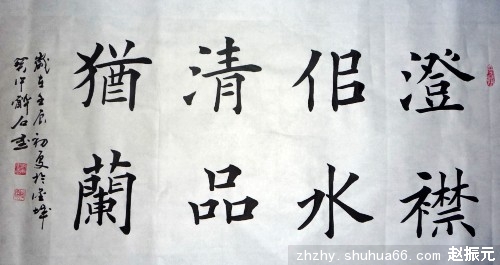 澄襟
佀水
清品
猶蘭
歲在壬辰初夏於
石書
zhzhy.shuhua66.com 赵振元